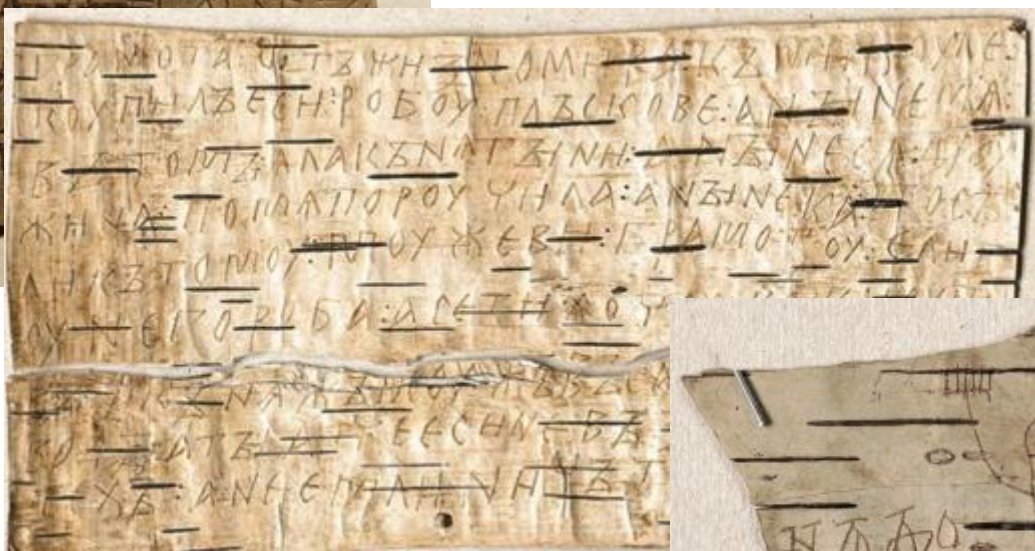 грамота отъ жизномира къ микоуле
коупилъ еси : робоу плъскове : а ныне мѧ :
въ томъ : ѧла кънѧгыни : а ныне сѧ дроу
жина : по мѧ пороучила : а ныне ка : посъ
ли къ томоу : моужеви : грамотоу : ели
оу него роба : а се ти хо
кънѧжъ моужъ въс
а ты атъ еси не въ
техъ : а не емли ничът